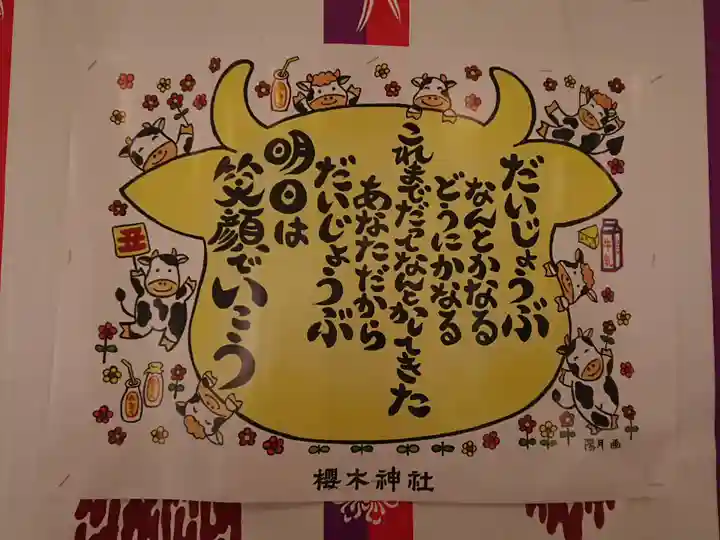 だいじょうぶ
なんとかなる
どうにかなる
これまでだってなんとかしてきた
あなただから
だいじょうぶ
明日は
笑顔でいこう
丑
牛乳
櫻木神社